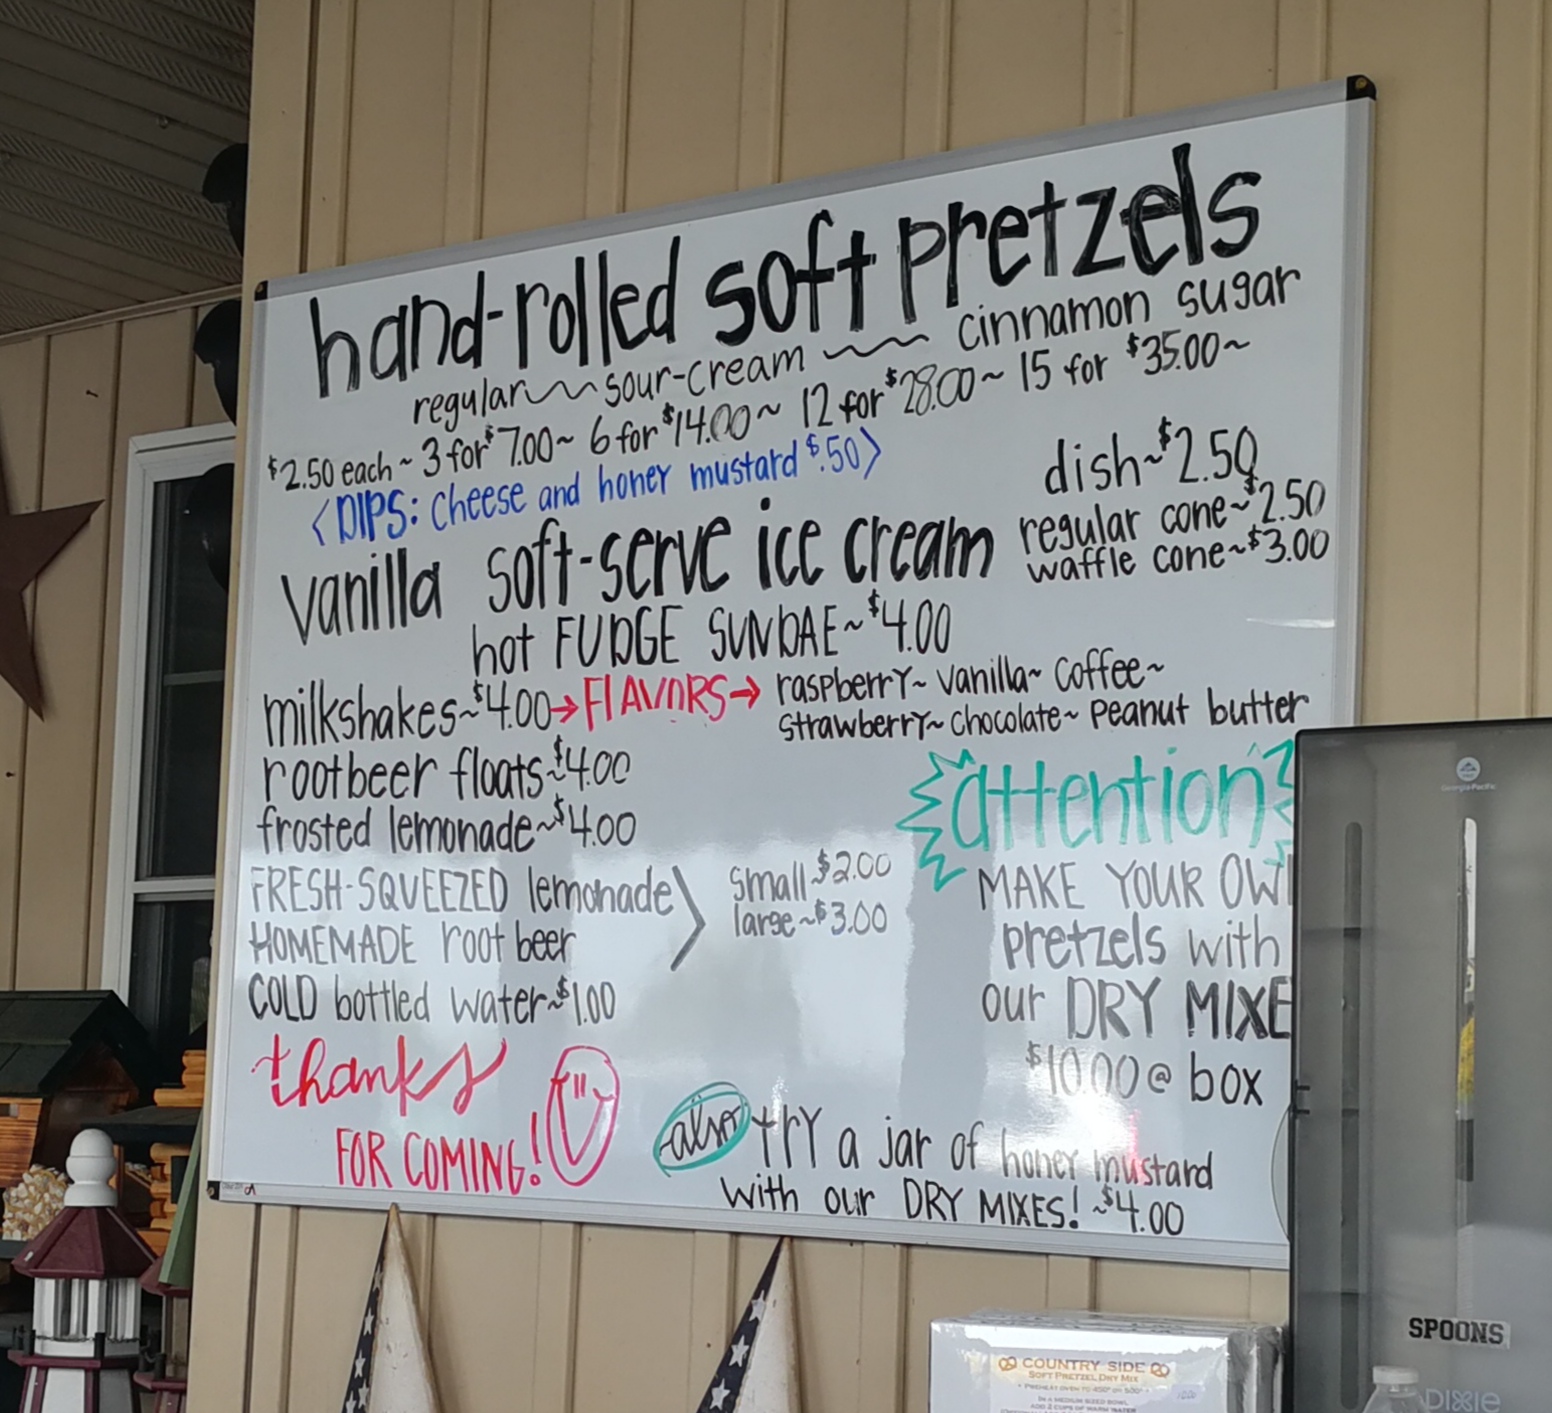 hand-rolled soft pretzels
regular ~~ sour-cream ~~ cinnamon sugar
$2.50 each ~ 3 for $7.00 ~ 6 for $14.00 ~ 12 for $28.00 ~ 15 for $35.00 ~
<DIPS: cheese and honey mustard $.50>
vanilla soft-serve ice cream
dish ~ $2.50
regular cone ~ $2.50
waffle cone ~ $3.00
hot FUDGE SUNDAE ~ $4.00
milkshakes ~ $4.00 → FlAVORS → raspberry ~ vanilla ~ coffee ~
strawberry ~ chocolate ~ Peanut butter
rootbeer floats ~ $4.00
frosted lemonade ~ $4.00
FRESH-SQUEEZED lemonade
HOMEMADE root beer
small $2.00
large ~ $3.00
COLD bottled water ~ $1.00
thanks
FOR COMING!
attention
MAKE YOUR OW
pretzels with
our DRY MIXE
$10.00 @ box
also try a jar of honey mustard
with our DRY MIXES! ~ $4.00
Georgia-Pacific
SPOONS
DIXIE
COUNTRY SIDE
SOFT PRETZEL DRY MIX
IN A MEDIUM SIZED BOWL
ADD 2 CUPS OF WARM WATER